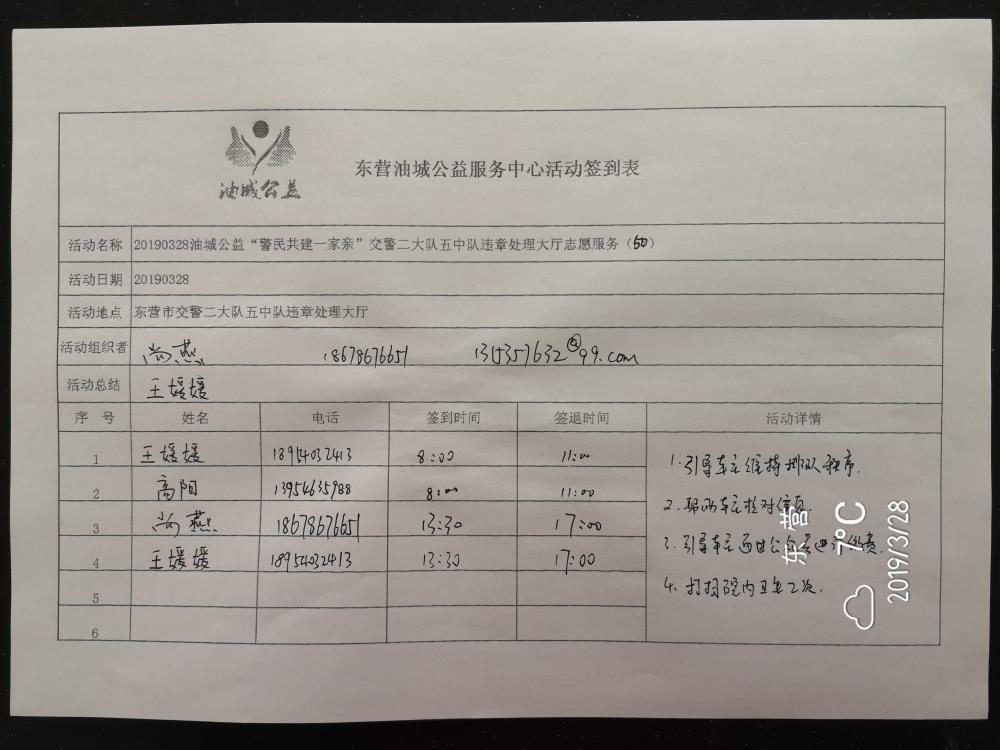 油城公益
东营油城公益服务中心活动签到表
活动名称 20190328油城公益“警民共建一家亲”交警二大队五中队违章处理大厅志愿服务（50）
活动日期 20190328
活动地点 东营市交警二大队五中队违章处理大厅
活动组织者 尚燕 18678676651 315357632@qq.com
活动总结 王媛媛
序 号 姓名 电话 签到时间 签退时间 活动详情
1 王媛媛 18954032413 8:00 11:00
2 高阳 13954635988 8:00 11:00
3 尚燕 18678676651 13:30 17:00
4 王媛媛 18954032413 13:30 17:00
5
6
1.引导车主维持排队秩序.
2.帮助车主核对信息.
3.引导车主通过公众号进行缴费.
4.打扫院内卫生2次.
东营
7°C
2019/3/28